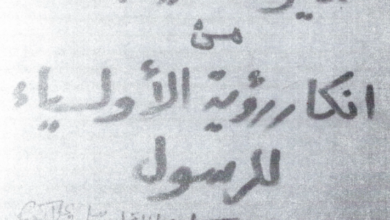 من
انكار رؤية الأولياء
للرسول